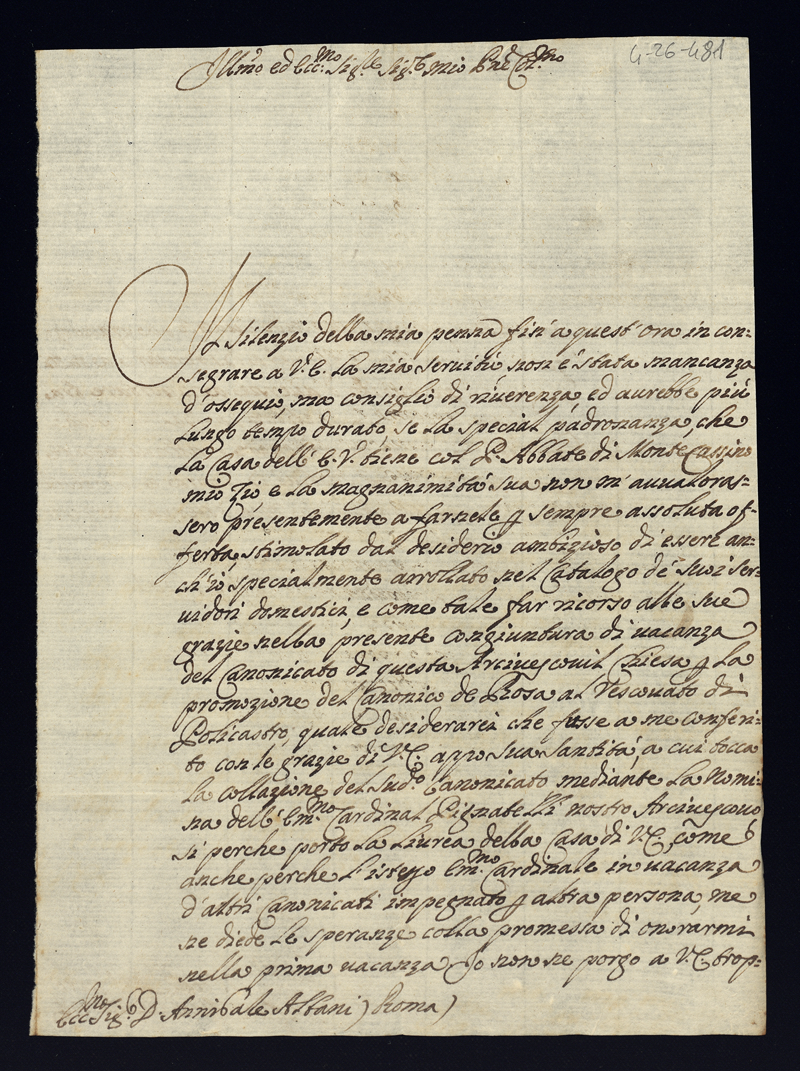 4-26-481
Ill.mo ed Ecc.mo Sig.re Sig.re mio P.ne Col.mo
Il silenzio della mia penna fin' a quest' ora in con=
segrare a V.E. la mia servitù non è stata mancanza
d'ossequi, ma consiglio di riverenza, ed aurebbe più
lungo tempo durato, se la special padronanza, che
la Casa dell' E.V. tiene col P. Abbate di Montecassino
mio Zio e la magnanimità sua non m' avvaloras=
sero presentemente a farnele p sempre assoluta of=
ferta, stimolato dal desiderio ambizioso di essere an=
ch'io specialmente arrollato nel Catalogo de' suoi ser=
uidori domestici, e come tale far ricorso alle sue
grazie nella presente congiuntura di vacanza
del Canonicato di questa Arciuescouil Chiesa p la
promozione del Canonico de Rosa al Vescouato di
Policastro, quale desiderarei che fusse a me conferi=
to con le grazie di V.E. app.o Sua Santità, a cui tocca
la collazione del Sud.o Canonicato mediante la Nomi=
na dell' Em.mo Cardinal Pignatelli nostro Arciuescouo
si perche porto la Liurea della Casa di V.E., come
anche perche l'istesso Em.mo Cardinale in vacanza
d'altri Canonicati impegnato p altra persona, me
ne diede le speranze colla promessa di onorarmi
nella prima vacanza. Io non ne porgo a V.E. trop=
Ecc.mo Sig.re D. Annibale Albani) Roma)